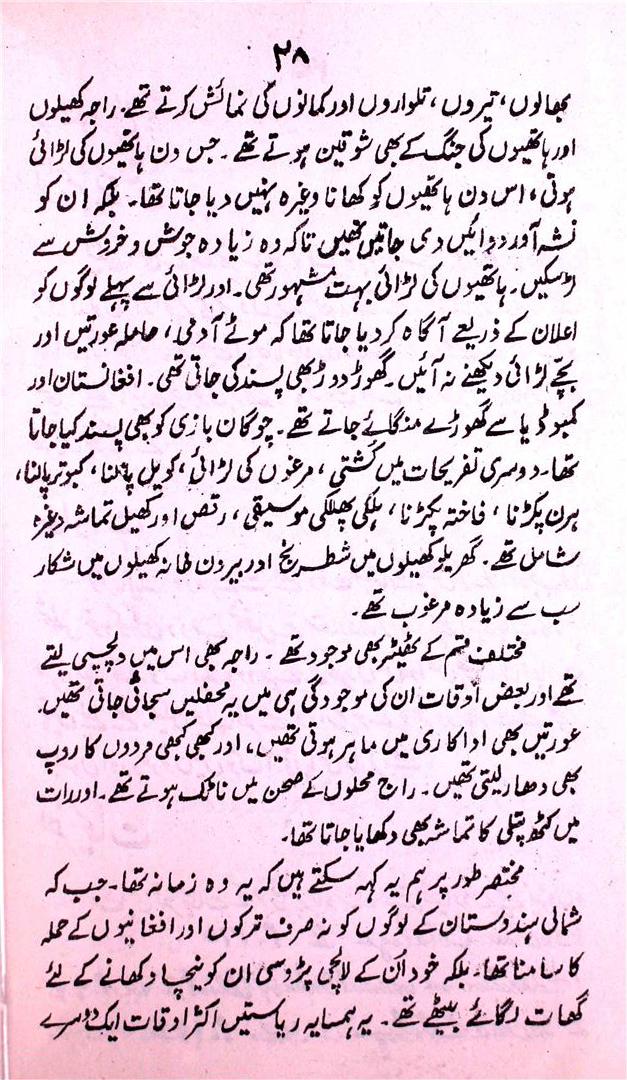 ۲۸
بھالوں، تیروں، تلواروں اور کمانوں کی نمائش کرتے تھے۔ راجہ کھیلوں
اور ہاتھیوں کی جنگ کے بھی شوقین ہوتے تھے۔ جس دن ہاتھیوں کی لڑائی
ہوتی، اس دن ہاتھیوں کو کھانا وغیرہ نہیں دیا جاتا تھا۔ بلکہ ان کو
نشہ آور دوائیں دی جاتیں تھیں تاکہ وہ زیادہ جوش و خروش سے
لڑ سکیں۔ ہاتھیوں کی لڑائی بہت مشہور تھی۔ اور لڑائی سے پہلے لوگوں کو
اعلان کے ذریعے آگاہ کر دیا جاتا تھا کہ موٹے آدمی، حاملہ عورتیں اور
بچے لڑائی دیکھنے نہ آئیں۔ گھوڑ دوڑ بھی پسند کی جاتی تھی۔ افغانستان اور
کمبوڈیا سے گھوڑے منگائے جاتے تھے۔ چوگان بازی کو بھی پسند کیا جاتا
تھا۔ دوسری تفریحات میں کُشتی، مرغوں کی لڑائی، کویل پالنا، کبوتر پالنا،
ہرن پکڑنا، فاختہ پکڑنا، ہلکی پھلکی موسیقی، رقص اور کھیل تماشہ وغیرہ
شامل تھے۔ گھریلو کھیلوں میں شطرنج اور بیرون خانہ کھیلوں میں شکار
سب سے زیادہ مرغوب تھے۔
مختلف قسم کے تھیٹر بھی موجود تھے۔ راجہ بھی اس میں دلچسپی لیتے
تھے اور بعض اوقات ان کی موجودگی ہی میں یہ محفلیں سجائی جاتی تھیں۔
عورتیں بھی اداکاری میں ماہر ہوتی تھیں، اور کبھی کبھی مردوں کا روپ
بھی دھار لیتی تھیں۔ راج محلوں کے صحن میں ناٹک ہوتے تھے۔ اور رات
میں کٹھ پتلی کا تماشہ بھی دکھایا جاتا تھا۔
مختصر طور پر ہم یہ کہہ سکتے ہیں کہ یہ وہ زمانہ تھا۔ جب کہ
شمالی ہندوستان کے لوگوں کو نہ صرف ترکوں اور افغانیوں کے حملہ
کا سامنا تھا۔ بلکہ خود اُن کے لالچی پڑوسی ان کو نیچا دکھانے کے لئے
گھات لگائے بیٹھے تھے۔ یہ ہمسایہ ریاستیں اکثر اوقات ایک دوسرے